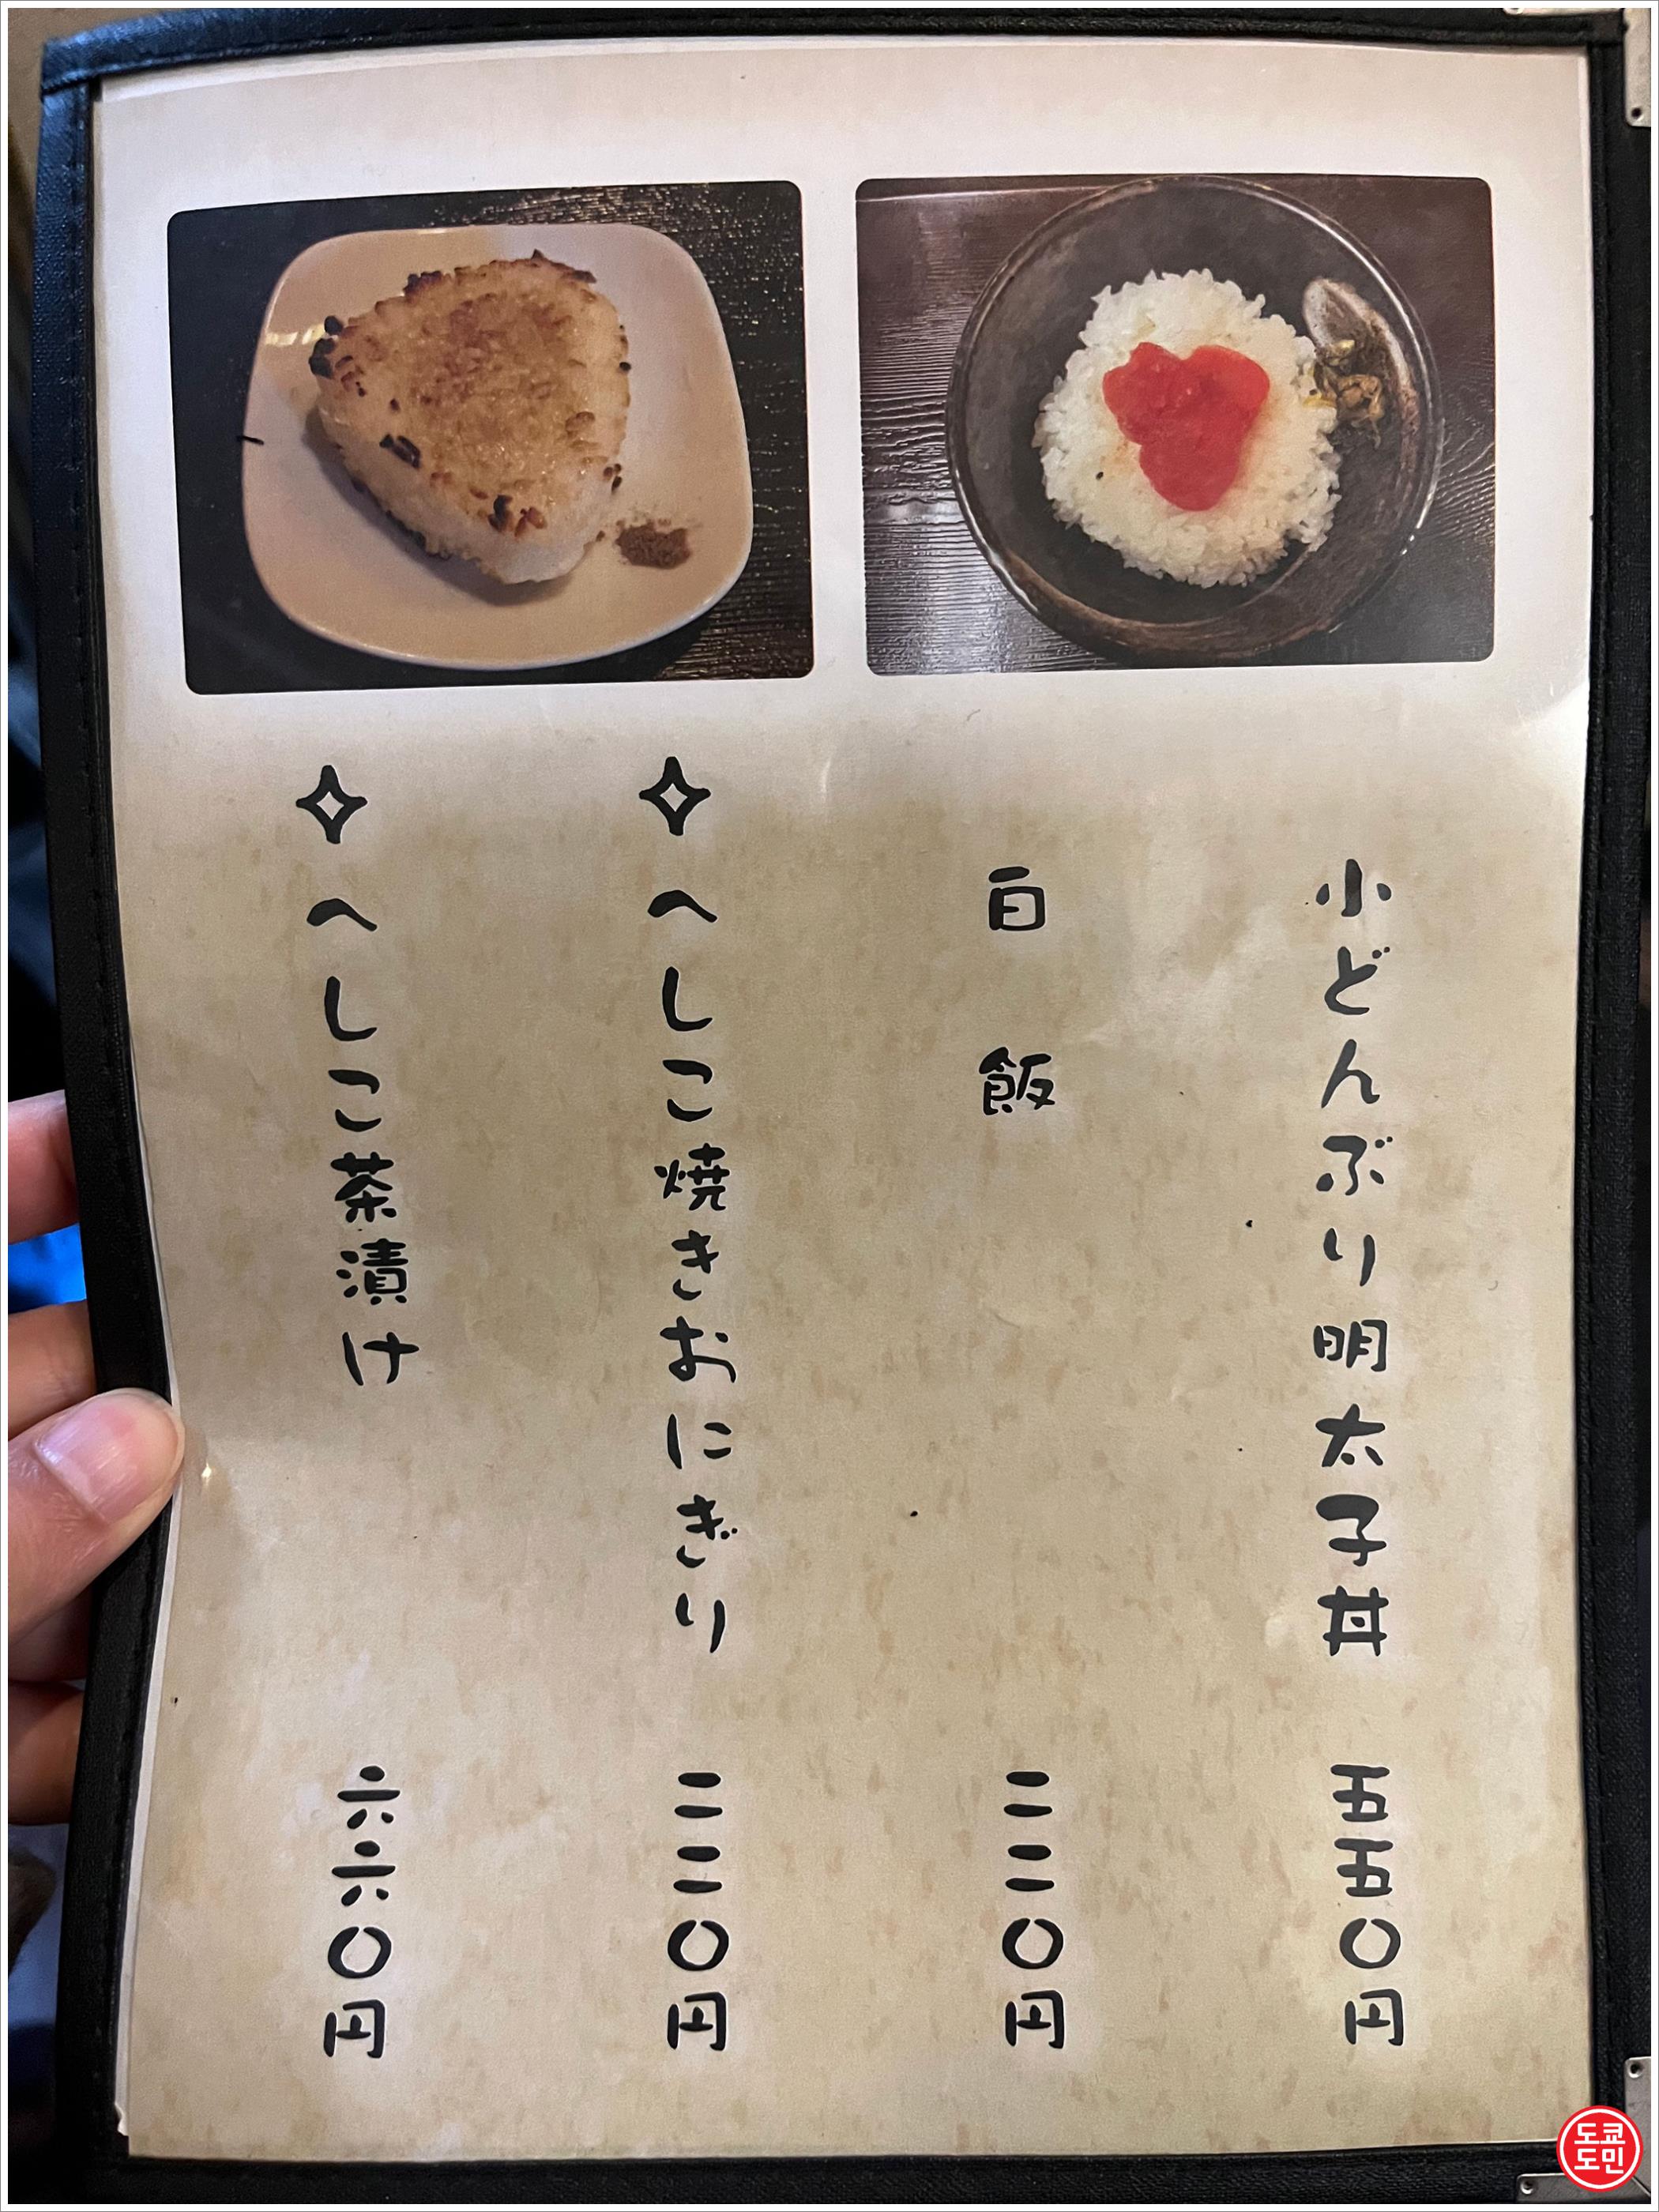 小どんぶり明太子丼 五五〇円
白飯 二二〇円
✧へしこ焼きおにぎり 二二〇円
✧へしこ茶漬け 六六〇円
도쿄
도민